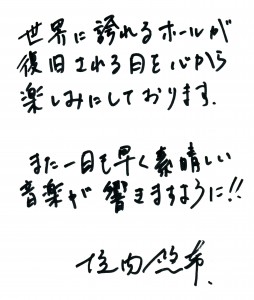 世界に誇れるホールが
復旧される日を心から
楽しみにしております.
また一日も早く素晴しい
音楽が響きますように!!